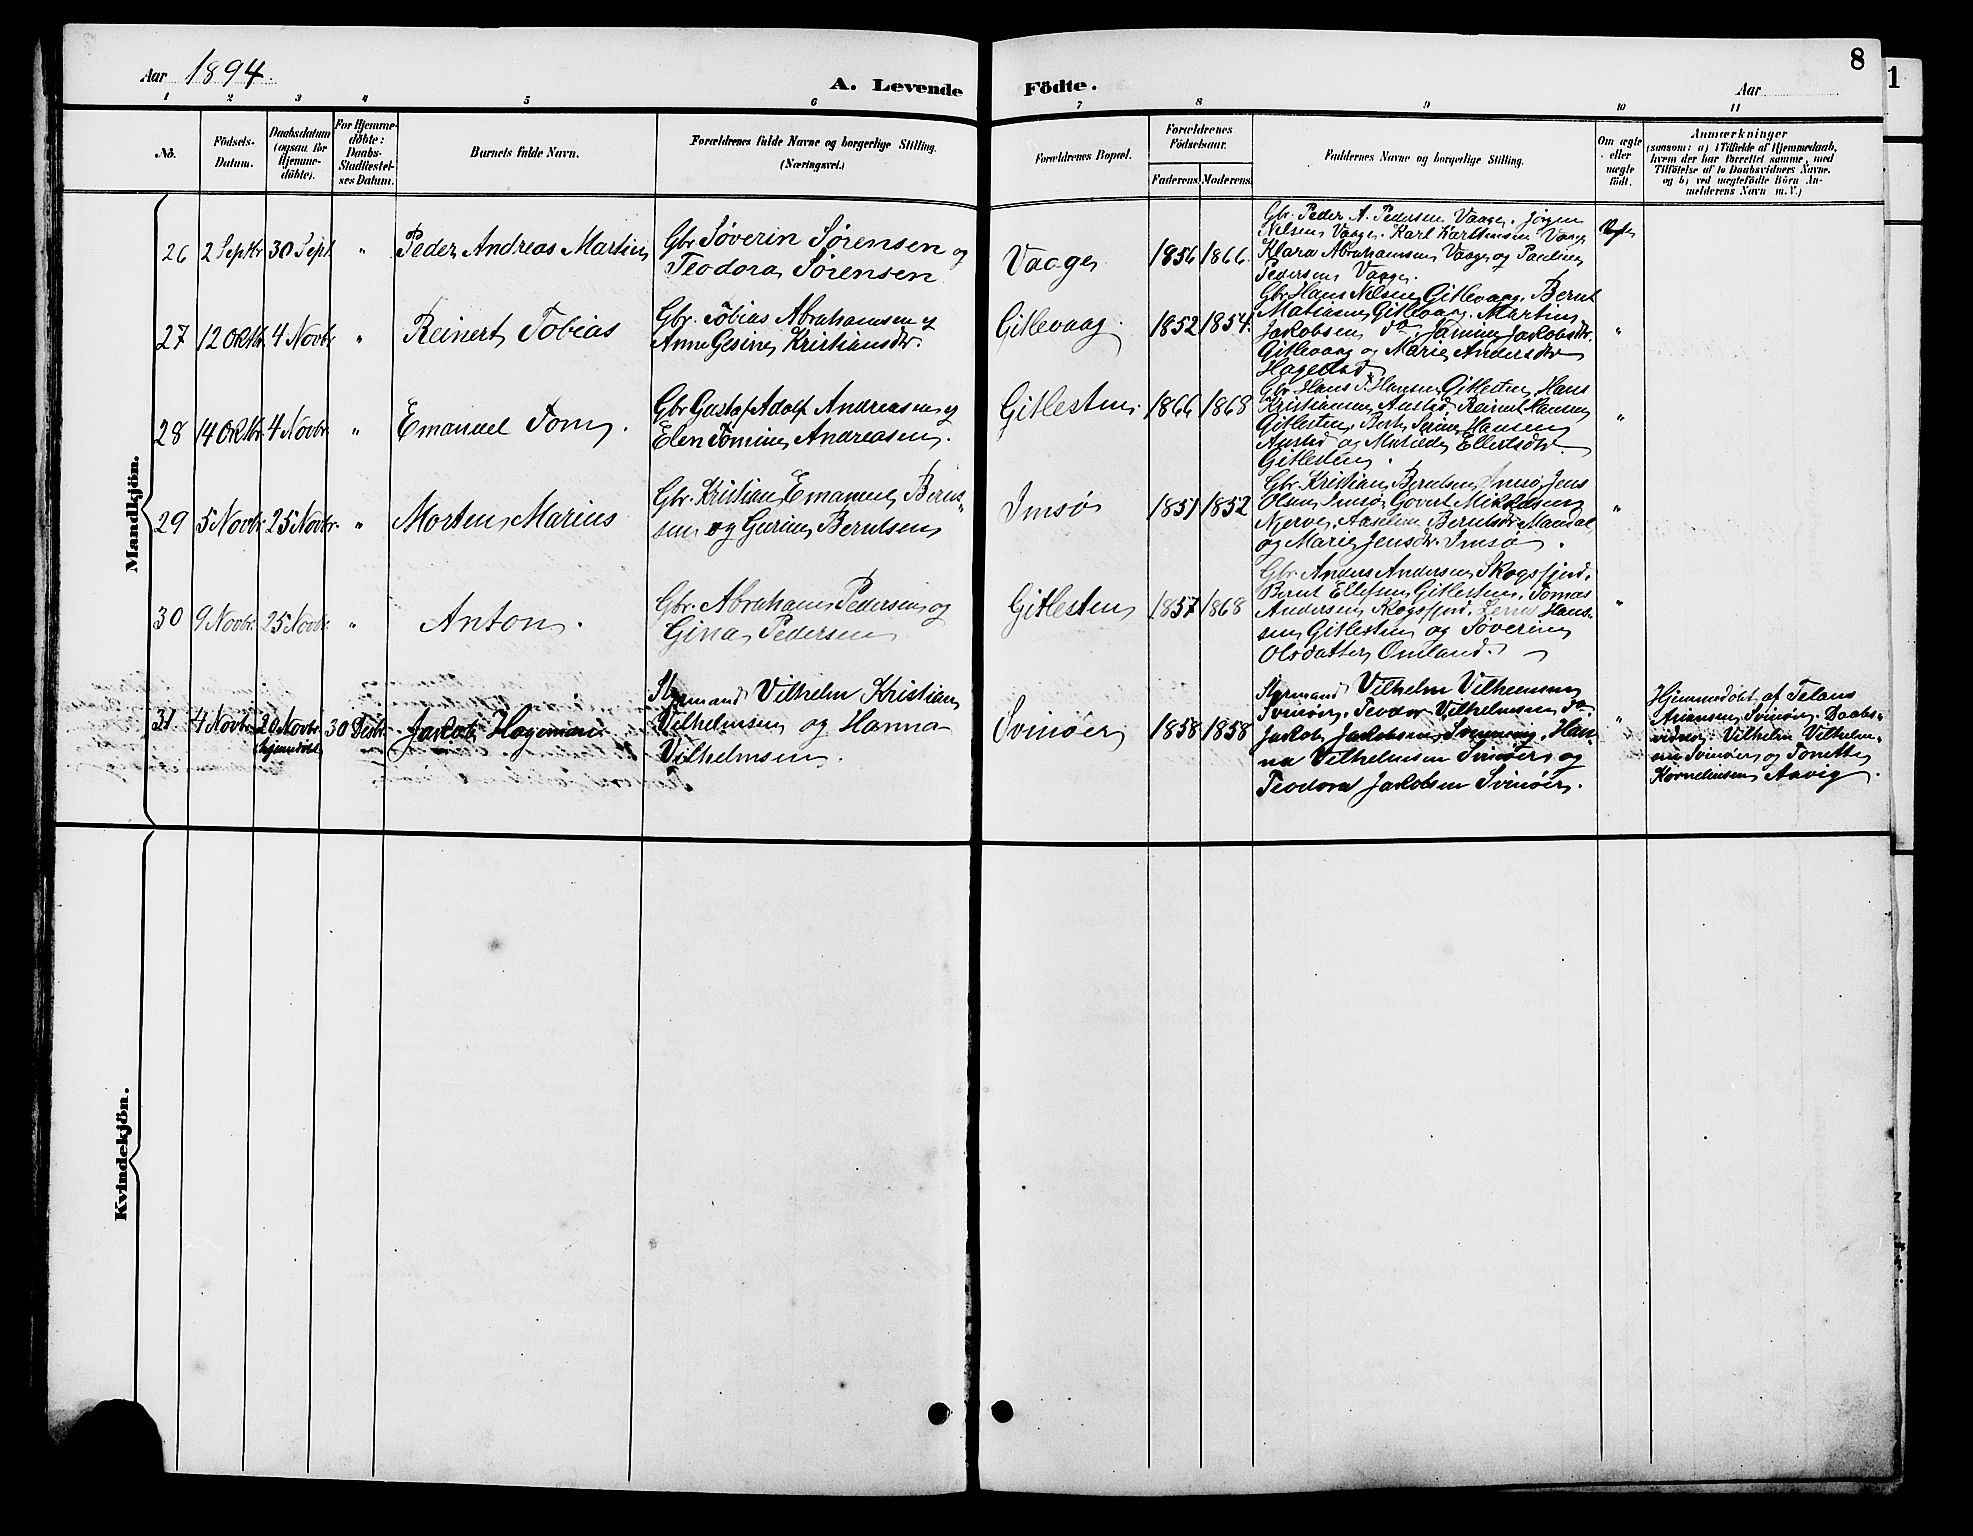 Aar 1894.
A. Levende Födte.
Aar
8
1
1 2 3 4 5 6 7 8 9 10 11
No.
Födsels-
Datum.
Daabsdatum
(ogsaa for
Hjemme-
döbte).
For Hjemme-
döbte:
Daabs-
Stadfæstel-
ses Datum.
Barnets fulde Navn.
Forældrenes fulde Navne og borgerlige Stilling.
(Næringsvei.)
Forældrenes Bopæl.
Forældrenes
Födselsaar.
Faderens. Moderens.
Faddernes Navne og borgerlige Stilling.
Om ægte
eller
uægte
födt.
Anmærkninger
(saasom: a) i Tilfælde af Hjemmedaab,
hvem der har forrettet samme, med
Tilföielse af to Daabsvidners Navne.
og b) ved uægtefödte Börn An-
melderens Navn m. V.)
Mandkjön.
26 2 Septbr 30 Sept " Peder Andreas Martin
Gbr Söverin Sörensen og
Teodora Sörensen
Vaage 1856 1866
Gbr. Peder A. Pedersen Vaage. Jörgen
Nilsen Vaage. Karl Karltinsen Vaage
Klara Abrahamsen Vaage og Pauline
Pedersen Vaage.
Ægte
27 12 Oktbr 4 Novbr " Reinert Tobias
Gbr. Tobias Abrahamsen og
Anne Gesine Kristiansdtr.
Gitlevaag. 1852 1854.
Gbr Hans Nilsen Gitlevaag. Bernt
Matiasen Gitlevaag. Martin
Jakobsen do Jamine Jakobsdtr.
Gitlevaag og Marie Andersdtr
Hagestad
"
28 14 Oktbr 4 Novbr. " Emanuel Tom.
Gbr Gustaf Adolf Andreasen og
Elen Tomine Andreasen.
Gitlesten 1866 1868
Gbr. Hans T. Hansen Gitlesten, Hans
Kristiansen Austad, Reinert Hansen
Gitlesten. Berte Serine Hansen
Austad og Matilde Ellertsdtr
Gitlesten.
"
29 5 Novbr. 25 Novbr. " Morten Marius
Gbr. Kristian Emanuel Bernt-
sen og Gurine Berntsen
Imsö 1851 1852
Gbr. Kristian Berntsen Imsö, Jens
Olsen Imsö, Govert Mikkelsen
Njerve, Aaseline Berntsdtr Mandal
og Marie Jensdtr. Imsö.
"
30 9 Novbr. 25 Novbr. " Anton.
Gbr. Abraham Pedersen og
Gina Pedersen
Gitlesten 1857 1868
Gbr. Anders Andersen Skogsfjord.
Bernt Ellefsen Gitlesten. Tomas
Andersen Skogsfjord. Lena Hans-
sen Gitlesten og Söverine
Olsdatter Omland.
"
31 4 Novbr 20 Novbr. hjemmedöbt 30 Desbr. Jakob Hageman
Styrmand Vilhelm Kristian
Vilhelmsen og Hanna
Vilhelmsen.
Svinöer 1858 1858
Styrmand Vilhelm Vilhelmsen
Svinöer, Teodor Vilhelmsen do
Jakob Jakobsen Svinöer, Han-
na Vilhelmsen Svinöer og
Teodora Jakobsen Svinöer.
"
Hjemmedöbt af Telans
Svinöer. Daabs-
vidner: Vilhelm Vilhelm-
sen Svinöer og Tonette
Korneliusen Aavig.
Kvindekjön.